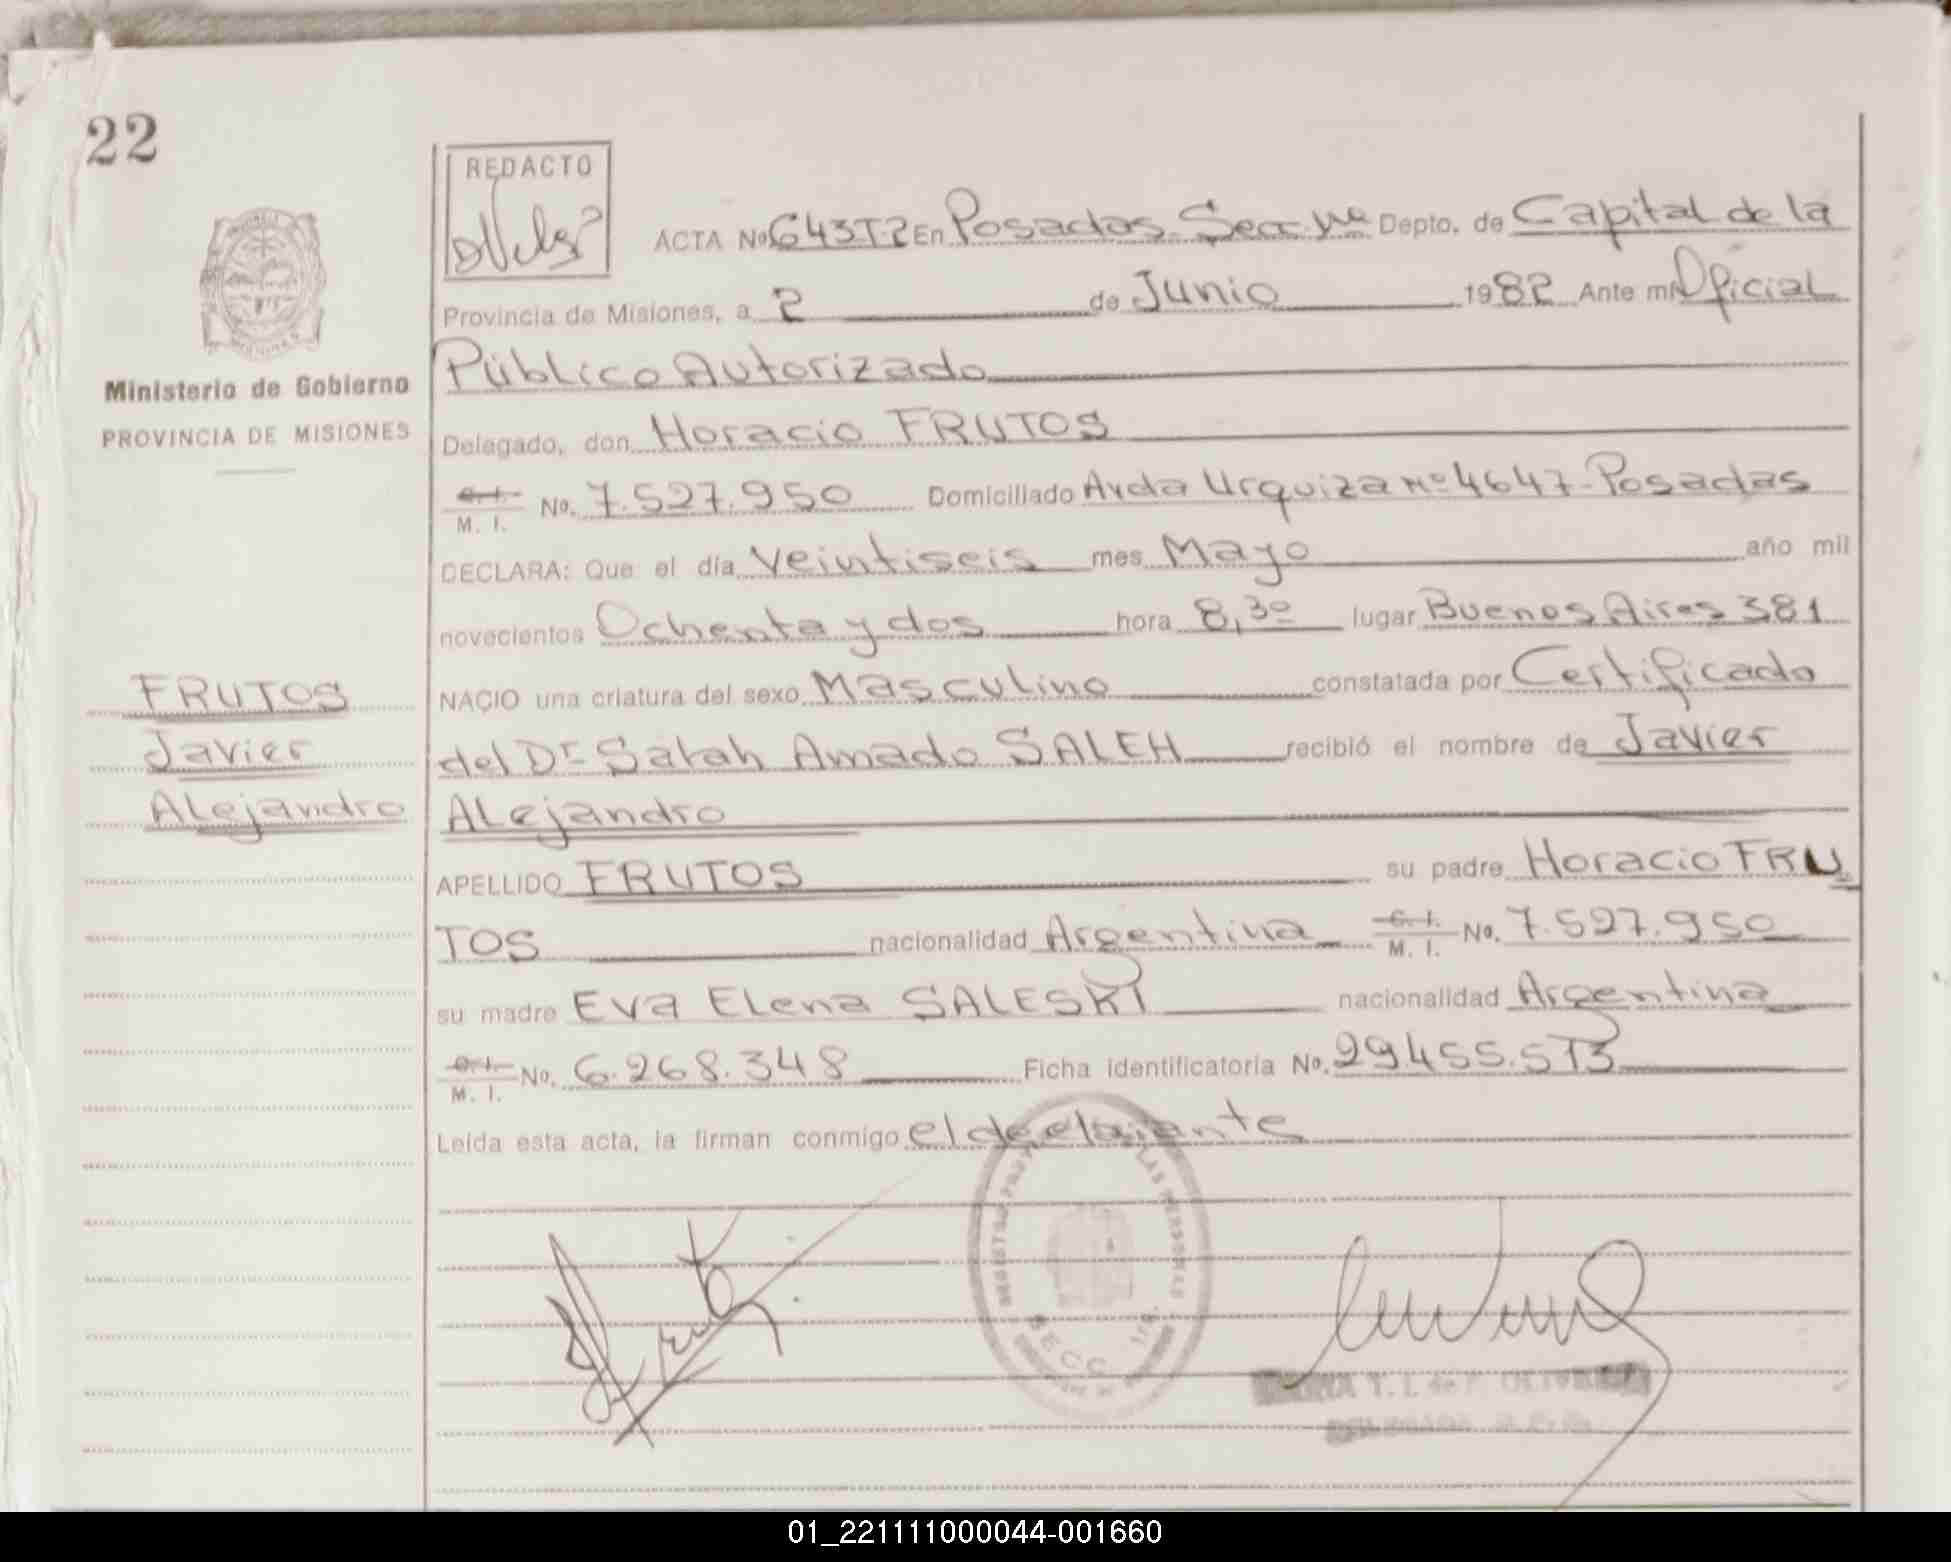 22
REDACTO
ACTA No 643T2 En Posadas Secc. 1ra Depto. de Capital de la
Provincia de Misiones, a 2 de Junio 1982 Ante mí Oficial
Ministerio de Gobierno
PROVINCIA DE MISIONES
Público Autorizado
Delegado, don Horacio FRUTOS
C. I. M. I. No. 7.527.950 Domiciliado Avda Urquiza Nº 4647-Posadas
DECLARA: Que el día Veintiseis mes Mayo año mil
novecientos Ochenta y dos hora 8,30 lugar Buenos Aires 381
NACIO una criatura del sexo Masculino constatada por Certificado
del Dr Salah Amado SALEH recibió el nombre de Javier
Alejandro
FRUTOS
Javier
Alejandro
APELLIDO FRUTOS su padre Horacio FRU
TOS nacionalidad Argentina C. I. M. I. No. 7.527.950
su madre Eva Elena SALESKI nacionalidad Argentina
C. I. M. I. No. 6.268.348 Ficha identificatoria No. 29.455.513
Leída esta acta, la firman conmigo el declarante
REGISTRO PROV. LAS PERSONAS
SECC. 1ra.
Y. I. de F. OLIVERA
DELEGADA
01_221111000044-001660